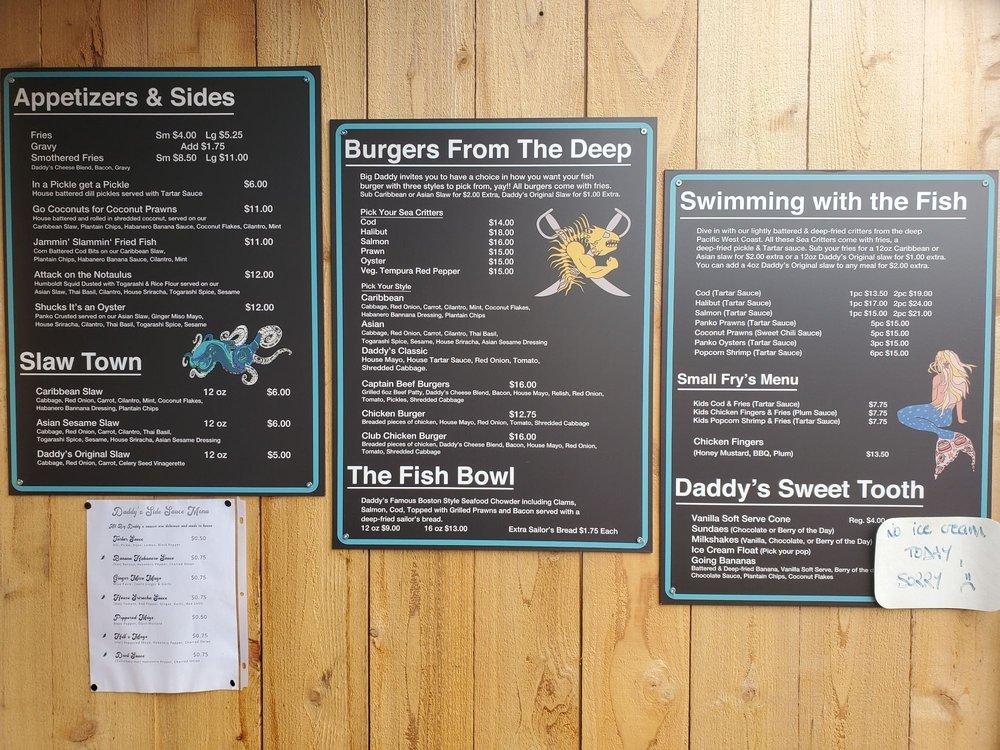 Appetizers & Sides
Fries Sm $4.00 Lg $5.25
Gravy Add $1.75
Smothered Fries Sm $8.50 Lg $11.00
Daddy's Cheese Blend, Bacon, Gravy
In a Pickle get a Pickle $6.00
House battered dill pickles served with Tartar Sauce
Go Coconuts for Coconut Prawns $11.00
House battered and rolled in shredded coconut, served on our
Caribbean Slaw, Plantain Chips, Habanero Banana Sauce, Coconut Flakes, Cilantro, Mint
Jammin' Slammin' Fried Fish $11.00
Corn Battered Cod Bits on our Caribbean Slaw,
Plantain Chips, Habanero Banana Sauce, Cilantro, Mint
Attack on the Notaulus $12.00
Humboldt Squid Dusted with Togarashi & Rice Flour served on our
Asian Slaw, Thai Basil, Cilantro, House Sriracha, Togarashi Spice, Sesame
Shucks It's an Oyster $12.00
Panko Crusted served on our Asian Slaw, Ginger Miso Mayo,
House Sriracha, Cilantro, Thai Basil, Togarashi Spice, Sesame
Slaw Town
Caribbean Slaw 12 oz $6.00
Cabbage, Red Onion, Carrot, Cilantro, Mint, Coconut Flakes,
Habanero Bannana Dressing, Plantain Chips
Asian Sesame Slaw 12 oz $6.00
Cabbage, Red Onion, Carrot, Cilantro, Thai Basil,
Togarashi Spice, Sesame, House Sriracha, Asian Sesame Dressing
Daddy's Original Slaw 12 oz $5.00
Cabbage, Red Onion, Carrot, Celery Seed Vinagerette
Daddy's Side Sauce Menu
All Big Daddy's sauces are delicious and made in house
Tartar Sauce $0.50
Banana Habanero Sauce $0.75
Ginger Miso Mayo $0.75
House Sriracha Sauce $0.75
Peppered Mayo $0.50
Hell's Mayo $0.75
Sauce $0.75
Burgers From The Deep
Big Daddy invites you to have a choice in how you want your fish
burger with three styles to pick from, yay!! All burgers come with fries.
Sub Caribbean or Asian Slaw for $2.00 Extra, Daddy's Original Slaw for $1.00 Extra.
Pick Your Sea Critters
Cod $14.00
Halibut $18.00
Salmon $16.00
Prawn $15.00
Oyster $15.00
Veg. Tempura Red Pepper $15.00
Pick Your Style
Caribbean
Cabbage, Red Onion, Carrot, Cilantro, Mint, Coconut Flakes,
Habanero Bannana Dressing, Plantain Chips
Asian
Cabbage, Red Onion, Carrot, Cilantro, Thai Basil,
Togarashi Spice, Sesame, House Sriracha, Asian Sesame Dressing
Daddy's Classic
House Mayo, House Tartar Sauce, Red Onion, Tomato,
Shredded Cabbage.
Captain Beef Burgers $16.00
Grilled 6oz Beef Patty, Daddy's Cheese Blend, Bacon, House Mayo, Relish, Red Onion,
Tomato, Pickles, Shredded Cabbage
Chicken Burger $12.75
Breaded pieces of chicken, House Mayo, Red Onion, Tomato, Shredded Cabbage
Club Chicken Burger $16.00
Breaded pieces of chicken, Daddy's Cheese Blend, Bacon, House Mayo, Red Onion,
Tomato, Shredded Cabbage
The Fish Bowl
Daddy's Famous Boston Style Seafood Chowder including Clams,
Salmon, Cod, Topped with Grilled Prawns and Bacon served with a
deep-fried sailor's bread.
12 oz $9.00 16 oz $13.00 Extra Sailor's Bread $1.75 Each
Swimming with the Fish
Dive in with our lightly battered & deep-fried critters from the deep
Pacific West Coast. All these Sea Critters come with fries, a
deep-fried pickle & Tartar sauce. Sub your fries for a 12oz Caribbean or
Asian slaw for $2.00 extra or a 12oz Daddy's Original slaw for $1.00 extra.
You can add a 4oz Daddy's Original slaw to any meal for $2.00 extra.
Cod (Tartar Sauce) 1pc $13.50 2pc $19.00
Halibut (Tartar Sauce) 1pc $17.00 2pc $24.00
Salmon (Tartar Sauce) 1pc $15.00 2pc $21.00
Panko Prawns (Tartar Sauce) 5pc $15.00
Coconut Prawns (Sweet Chili Sauce) 5pc $15.00
Panko Oysters (Tartar Sauce) 3pc $15.00
Popcorn Shrimp (Tartar Sauce) 6pc $15.00
Small Fry's Menu
Kids Cod & Fries (Tartar Sauce) $7.75
Kids Chicken Fingers & Fries (Plum Sauce) $7.75
Kids Popcorn Shrimp & Fries (Tartar Sauce) $7.75
Chicken Fingers
(Honey Mustard, BBQ, Plum) $13.50
Daddy's Sweet Tooth
Vanilla Soft Serve Cone Reg. $4.00
Sundaes (Chocolate or Berry of the Day)
Milkshakes (Vanilla, Chocolate, or Berry of the Day)
Ice Cream Float (Pick your pop)
Going Bananas
Battered & Deep-fried Banana, Vanilla Soft Serve, Berry of the
Chocolate Sauce, Plantain Chips, Coconut Flakes
NO ICE CREAM
TODAY !
SORRY